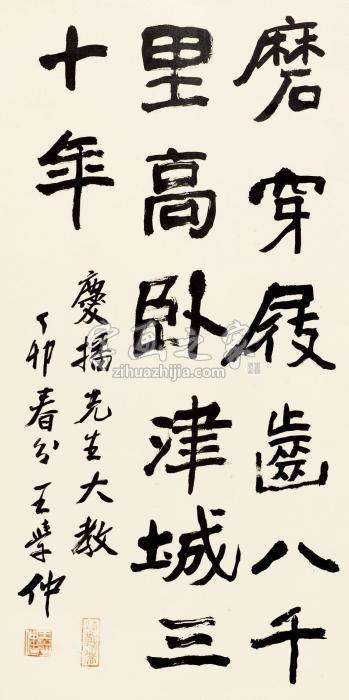 磨穿屐齒八千
里高卧津城三
十年
慶搖先生大教
丁卯春分王學仲
字画之家
zihuazhijia.com